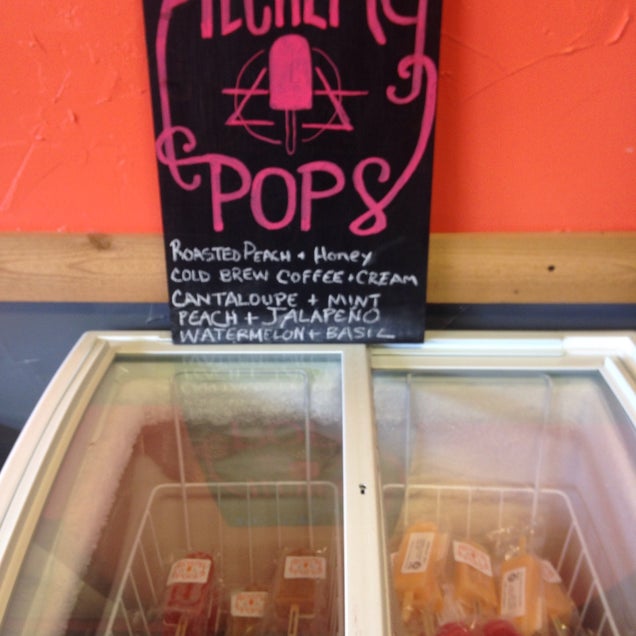 ALCHEMY
POPS
ROASTED PEACH + HONEY
COLD BREW COFFEE + CREAM
CANTALOUPE + MINT
PEACH + JALAPENO
WATERMELON + BASIL